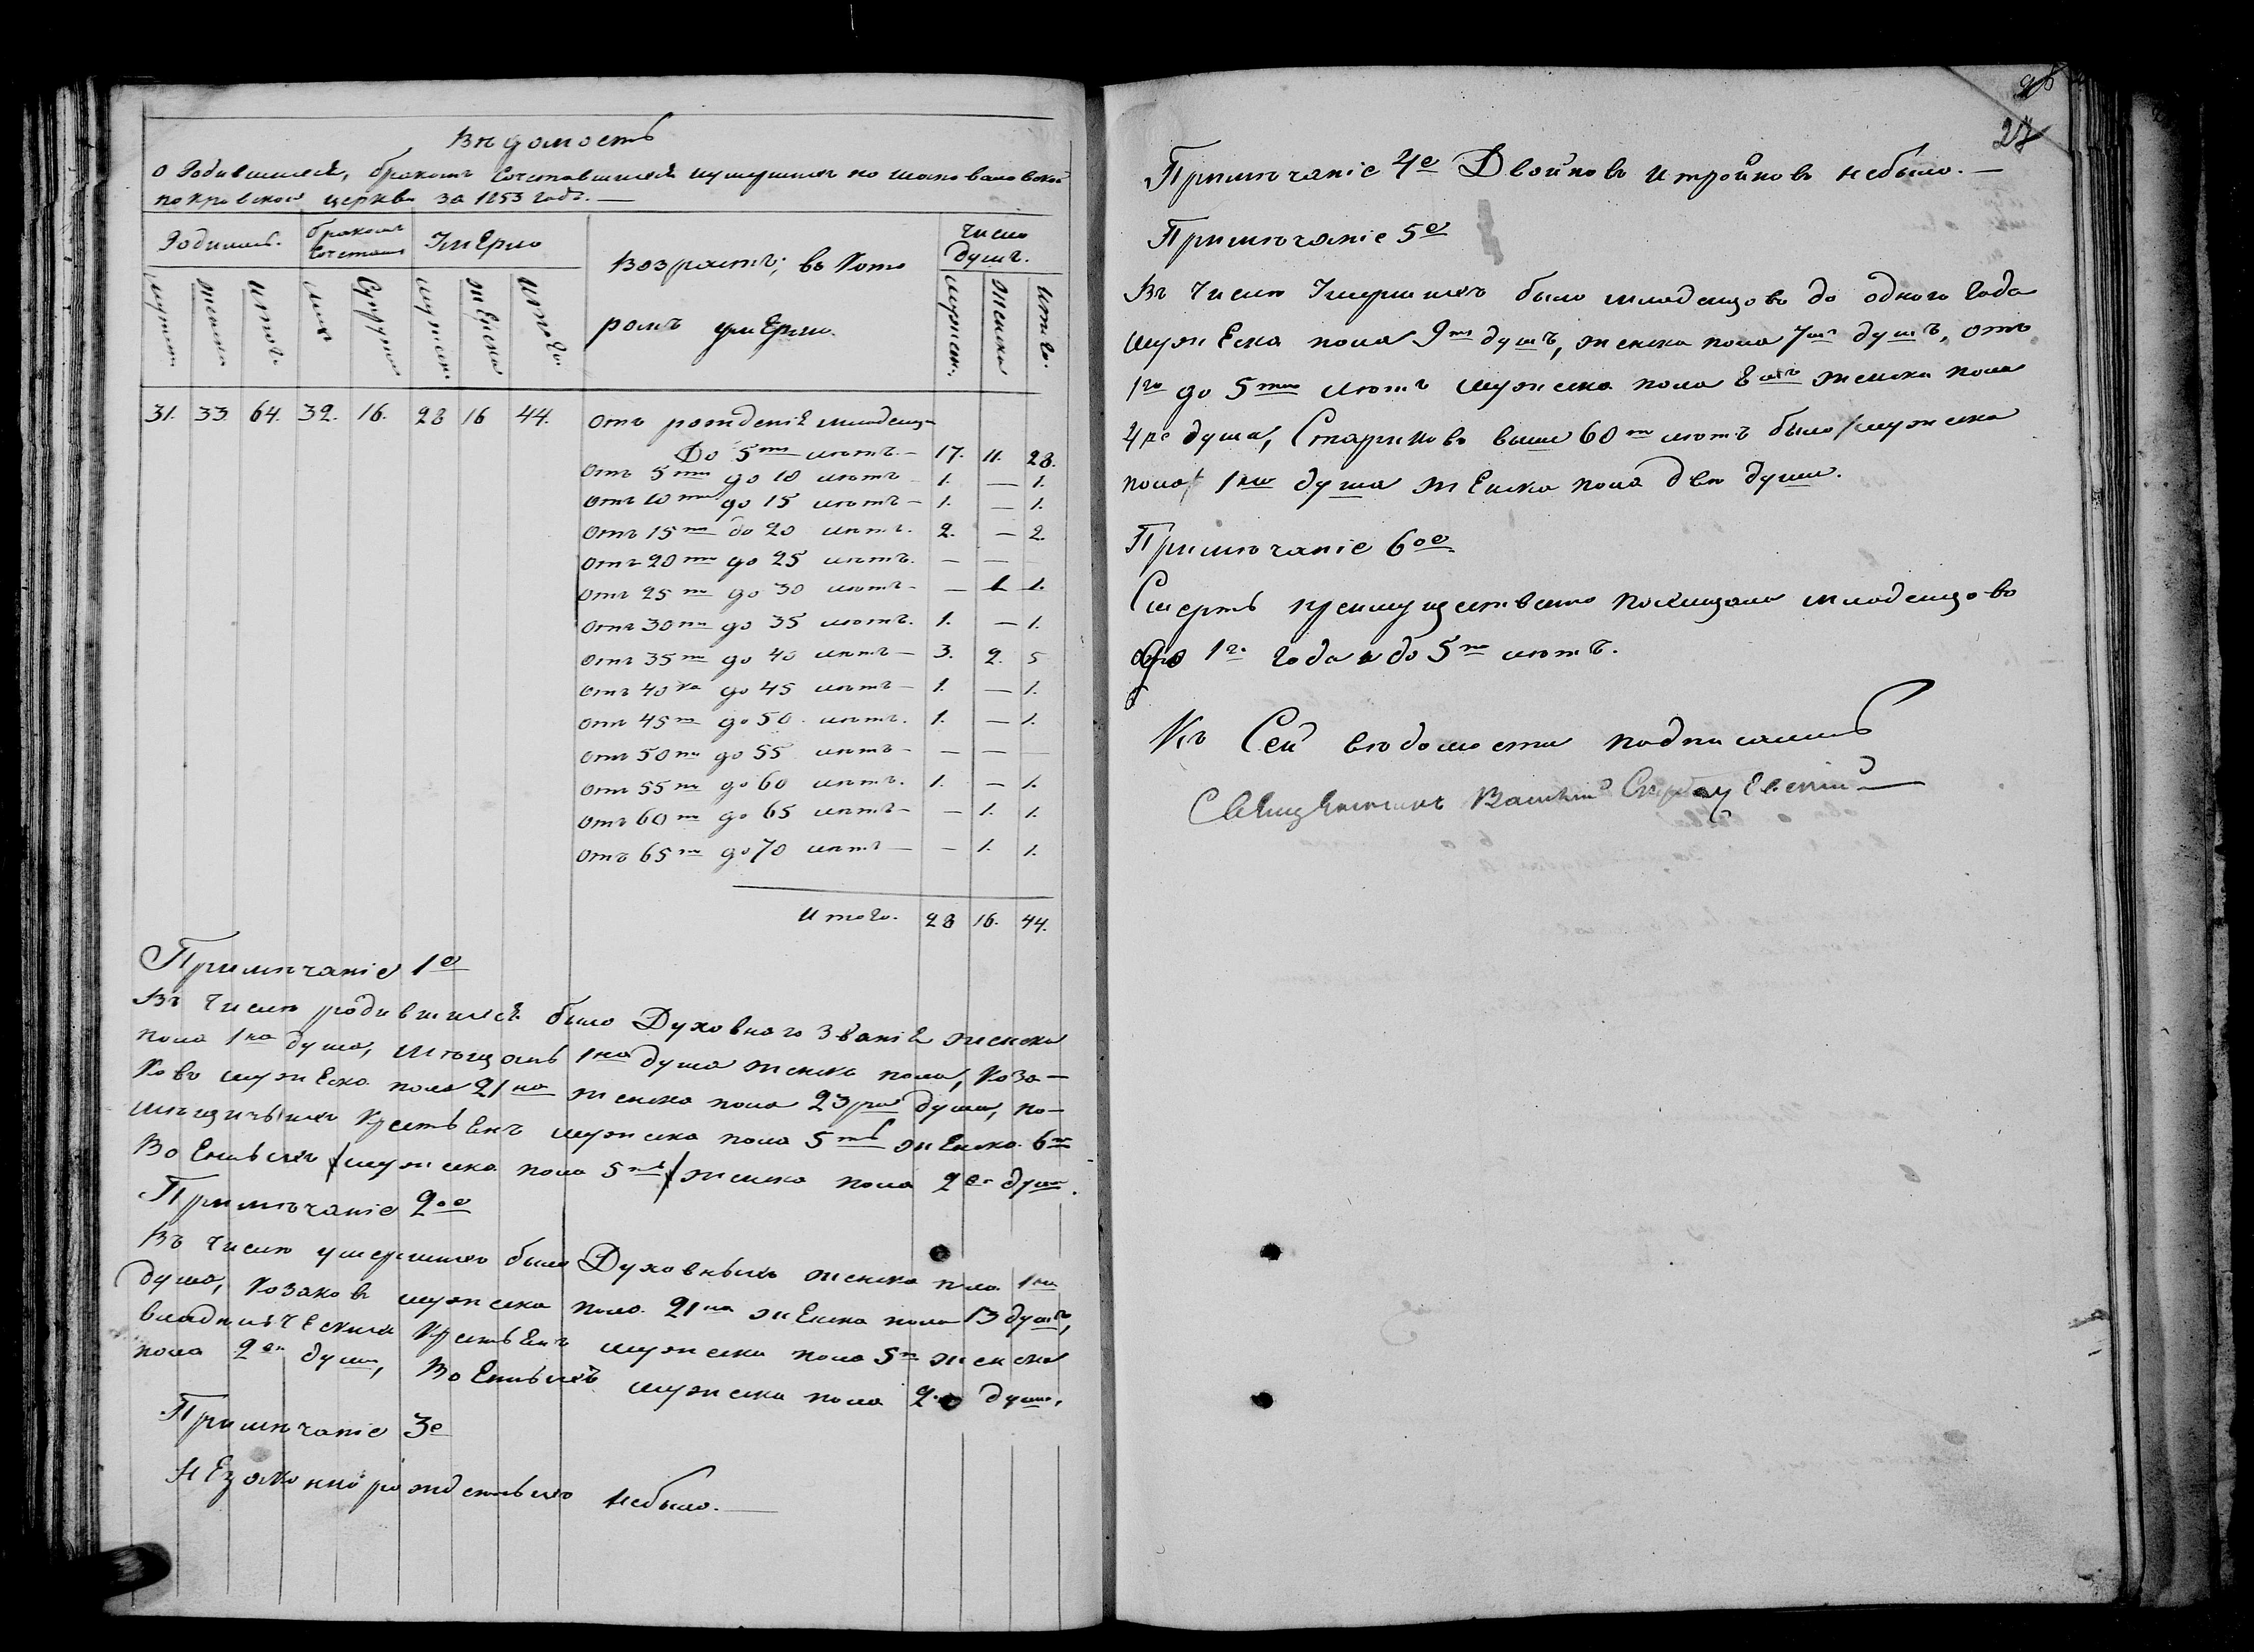 Вѣдомость
о Родившихся, бракомъ Сочетавшихся и умершихъ по
покровской церкви за 1853 годъ.—
Родились. бракомъ Сочетали Умерло Возрастъ, въ Кото Число душъ.
ромъ умерли.
мужеск женска итого лицъ Супруж мужеск женска итого. мужеск. Женска итого.
31. 33. 64. 32. 16. 28 16 44. Отъ рожденія младенц
До 5ти лѣтъ.— 17. 11. 28.
Отъ 5ти до 10 лѣтъ 1. — 1.
Отъ 10ти до 15 лѣтъ— 1. — 1.
Отъ 15ти до 20 лѣтъ. 2. — 2.
Отъ 20ти до 25 лѣтъ. — —
Отъ 25ти до 30 лѣтъ— — 1 1.
Отъ 30ти до 35 лѣтъ. 1. — 1.
Отъ 35ти до 40 лѣтъ— 3. 2. 5
Отъ 40ка до 45 лѣтъ— 1. — 1.
Отъ 45ти до 50 лѣтъ. 1. — 1.
Отъ 50ти до 55 лѣтъ— — — —
Отъ 55ти до 60 лѣтъ. 1. — 1.
Отъ 60ти до 65 лѣтъ— — 1. 1.
Отъ 65ти до 70 лѣтъ— — 1. 1.
Итого. 28 16. 44.
Примѣчаніе 1е
Въ Числѣ родившихся было Духовного Званія женска
пола 1на душа, мѣщанъ 1на душа женска пола, Коза—
ковъ мужеска пола 21на женска пола 23ри души, по—
мѣщичьихъ Крестьянъ мужеска пола 5ть женска 6ть
Военныхъ /мужеска пола 5ть/ женска пола 2вѣ души.
Примѣчаніе 2ое
Въ Числѣ умершихъ было Духовныхъ женска пола 1на
душа, Козаковъ мужеска пола 21на женска пола 13 душъ,
владѣльческихъ Крестьянъ мужеска пола 5ть женска
пола 2вѣ души, Военныхъ мужеска пола 2вѣ души.
Примѣчаніе 3е
Незаконнорожденныхъ небыло.—
28
27
Примѣчаніе 4е Двойновъ и тройновъ небыло.—
Примѣчаніе 5е
Въ Числѣ Умершихъ было младенцовъ до одного Года
мужеска пола 9ть душъ, женска пола 7мь душъ, отъ
1го до 5ти лѣтъ мужеска пола 8мь женска пола
4ре души, Стариковъ выше 60ти лѣтъ было /мужеска
пола/ 1на душа женска пола двѣ души.
Примѣчаніе 6ое
Смерть преимущественно похищала младенцовъ
до 1го Года и до 5ти лѣтъ.
Къ Сей вѣдомости подписались
Священникъ Василій